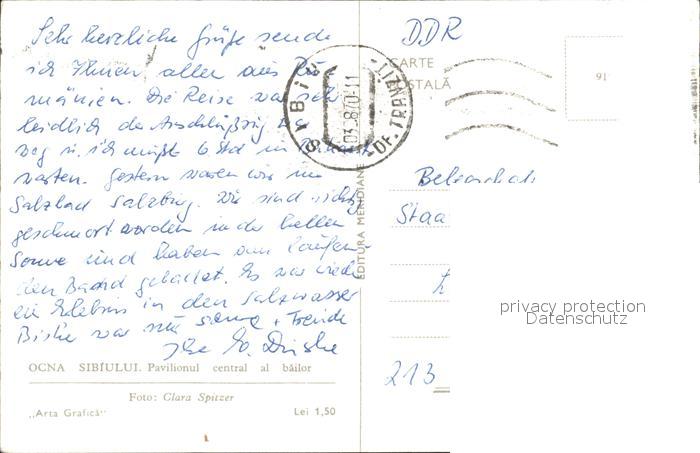 Sehr herzliche Grüße sende
ich Ihnen allen aus Ru-
mänien. Die Reise war sehr
leidlich der Anschlußzug war
weg u. ich mußte 6 Std in
warten. Gestern waren wir im
Salzbad Salzburg. Wir sind richtig
geschmort worden in der hellen
Sonne und haben am laufen-
den Band gebadet. Es war wieder
ein Erlebnis in den Salzwasser
Bisher war nur Sonne + Freude
Ihre
OCNA SIBIULUI. Pavilionul central al băilor
Foto: Clara Spitzer
„Arta Grafică" Lei 1,50
EDITURA MERIDIANE
SIBIU
03.8.70-11
DDR
CARTE
POSTALĂ
91
Staa
213
privacy protection
Datenschutz